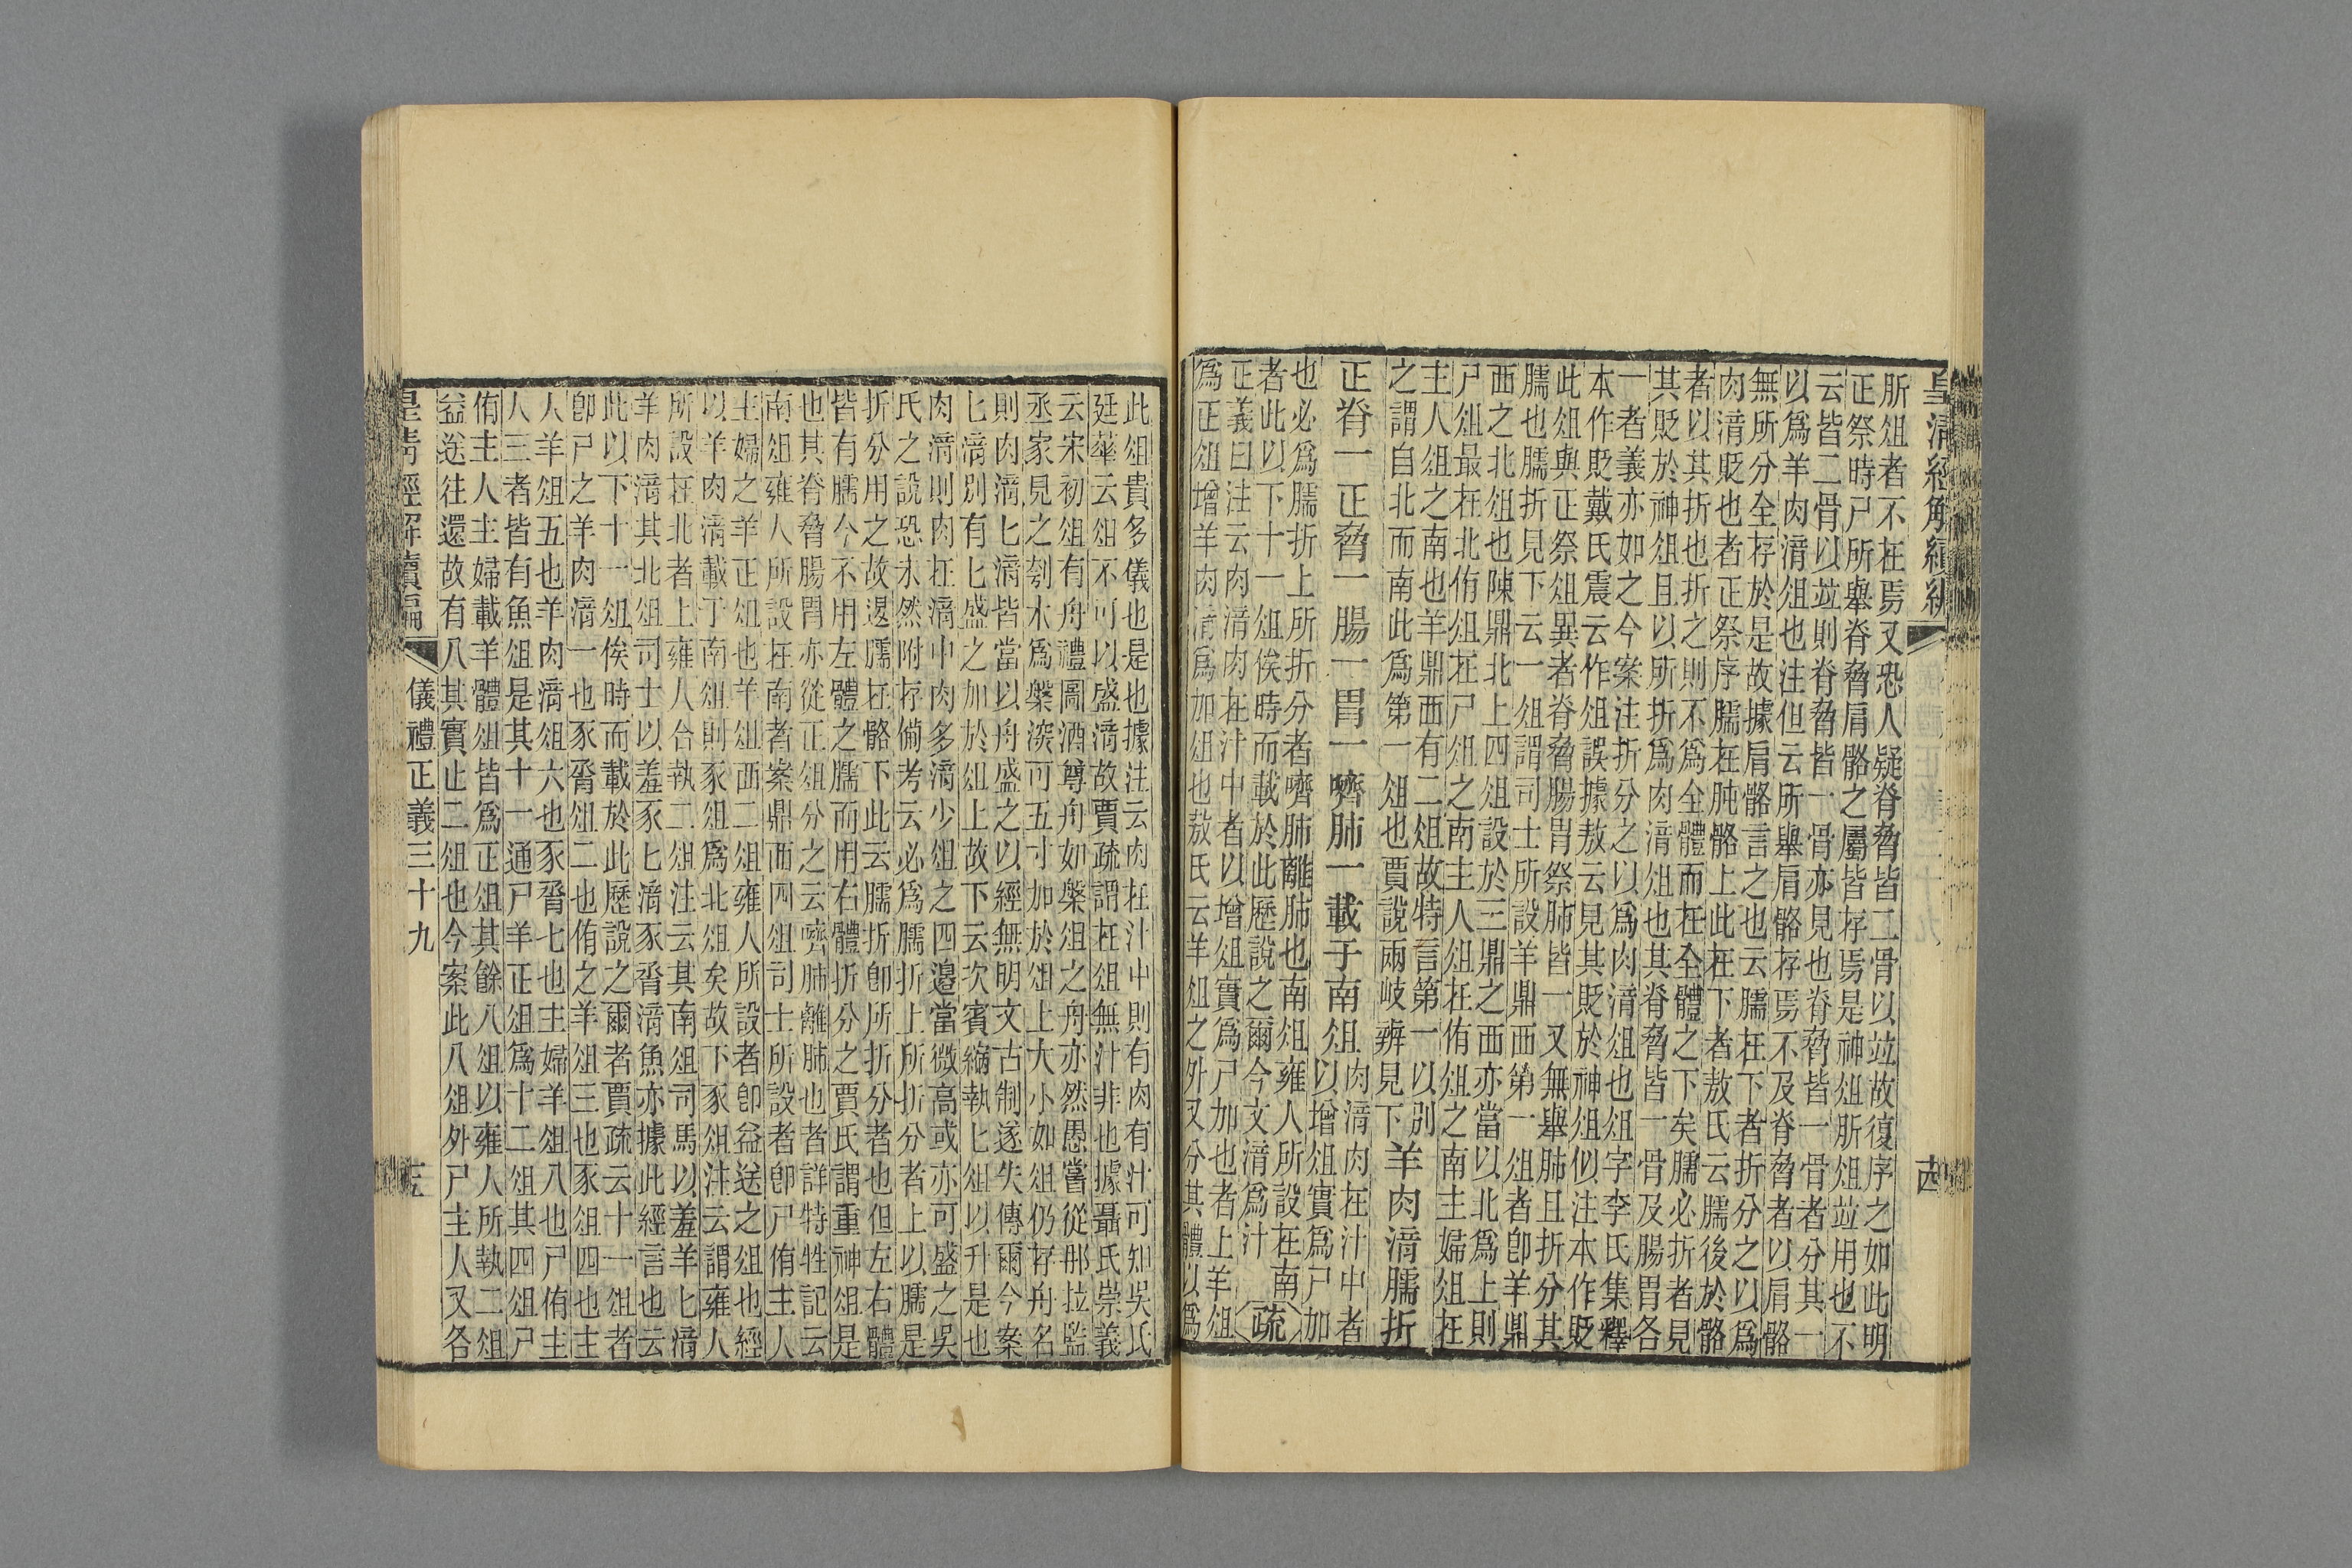 皇清經解續編
十四
肵俎者不在焉又恐人疑脊脅皆二骨以竝故復序之如此明
正祭時尸所舉脊脅肩骼之屬皆存焉是神俎肵俎竝用也不
云皆二骨以竝則脊脅皆一骨亦見也脊脅皆一骨者分其一
以爲羊肉湆俎也注但云所舉肩骼存焉不及脊脅者以肩骼
無所分全存於是故據肩骼言之也云臑在下者折分之以爲
肉湆貶也者正祭序臑在肫骼上此在下者敖氏云臑後於骼
者以其折也折之則不爲全體而在全體之下矣臑必折者見
其貶於神俎且以所折爲肉湆俎也其脊脅皆一骨及腸胃各
一者義亦如之今案注折分之以爲肉湆俎也俎字李氏集釋
本作貶戴氏震云作俎誤據敖云見其貶於神俎似注本作貶
此俎與正祭俎異者脊脅腸胃祭肺皆一又無舉肺且折分其
臑也臑折見下云一俎謂司士所設羊鼎西第一俎者卽羊鼎
西之北俎也陳鼎北上四俎設於三鼎之西亦當以北爲上則
尸俎最在北侑俎在尸俎之南主人俎在侑俎之南主婦俎在
主人俎之南也羊鼎西有二俎故特言第一以別
之謂自北而南此爲第一俎也賈說兩岐辨見下
羊肉湆臑折
正脊一正脅一腸一胃一嚌肺一載于南俎
肉湆肉在汁中者
以增俎實爲尸加
也必爲臑折上所折分者嚌肺離肺也南俎雍人所設在南
者此以下十一俎俟時而載於此歷說之爾今文湆爲汁
疏
正義曰注云肉湆肉在汁中者以增俎實爲尸加也者上羊俎
爲正俎增羊肉湆爲加俎也敖氏云羊俎之外又分其體以爲
此俎貴多儀也是也據注云肉在汁中則有肉有汁可知吳氏
廷華云俎不可以盛湆故賈疏謂在俎無汁非也據聶氏崇義
云宋初俎有舟禮圖酒尊舟如槃俎之舟亦然愚嘗從那拉監
丞家見之刳木爲槃深可五寸加於俎上大小如俎仍存舟名
則肉湆匕湆皆當以舟盛之以經無明文古制遂失傳爾今案
匕湆別有匕盛之加於俎上故下云次賓縮執匕俎以升是也
肉湆則肉在湆中肉多湆少俎之四邊當微高或亦可盛之吳
氏之說恐未然附存備考云必爲臑折上所折分者上以臑是
折分用之故退臑在骼下此云臑折卽所折分者也但左右體
皆有臑今不用左體之臑而用右體折分之賈氏謂重神俎是
也其脊脅腸胃亦從正俎分之云嚌肺離肺也者詳特牲記云
南俎雍人所設在南者案鼎西四俎司士所設者卽尸侑主人
主婦之羊正俎也羊俎西二俎雍人所設者卽益送之俎也經
以羊肉湆載于南俎則豕俎爲北俎矣故下豕俎注云謂雍人
所設在北者上雍人合執二俎注云其南俎司馬以羞羊匕湆
羊肉湆其北俎司士以羞豕匕湆豕脀湆魚亦據此經言也云
此以下十一俎俟時而載於此歷說之爾者賈疏云十一俎者
卽尸之羊肉湆一也豕脀俎二也侑之羊俎三也豕俎四也主
人羊俎五也羊肉湆俎六也豕脀七也主婦羊俎八也尸侑主
人三者皆有魚俎是其十一通尸羊正俎爲十二俎其四俎尸
侑主人主婦載羊體俎皆爲正俎其餘八俎以雍人所執二俎
益送往還故有八其實止二俎也今案此八俎外尸主人又各
皇清經解續編
儀禮正義三十九